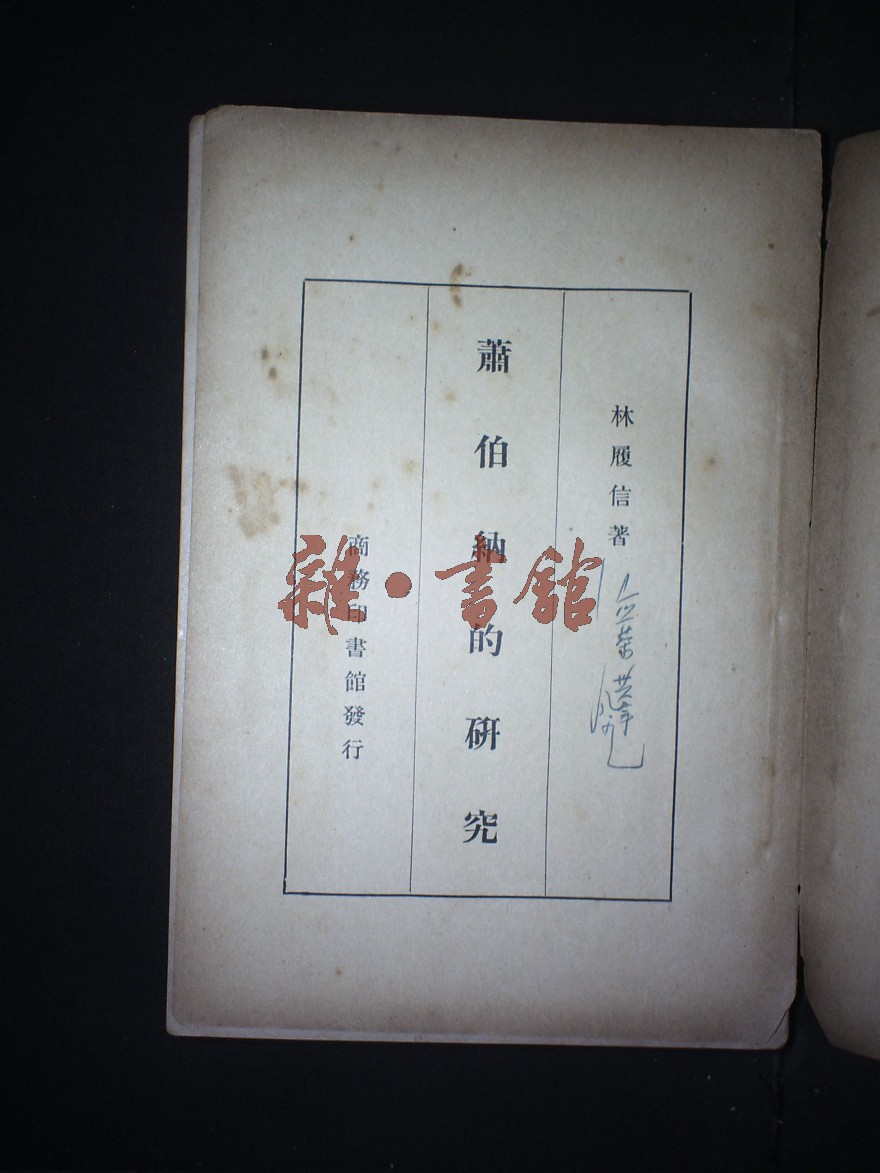 林履信著
蕭伯納的研究
商務印書館發行
雜·書館